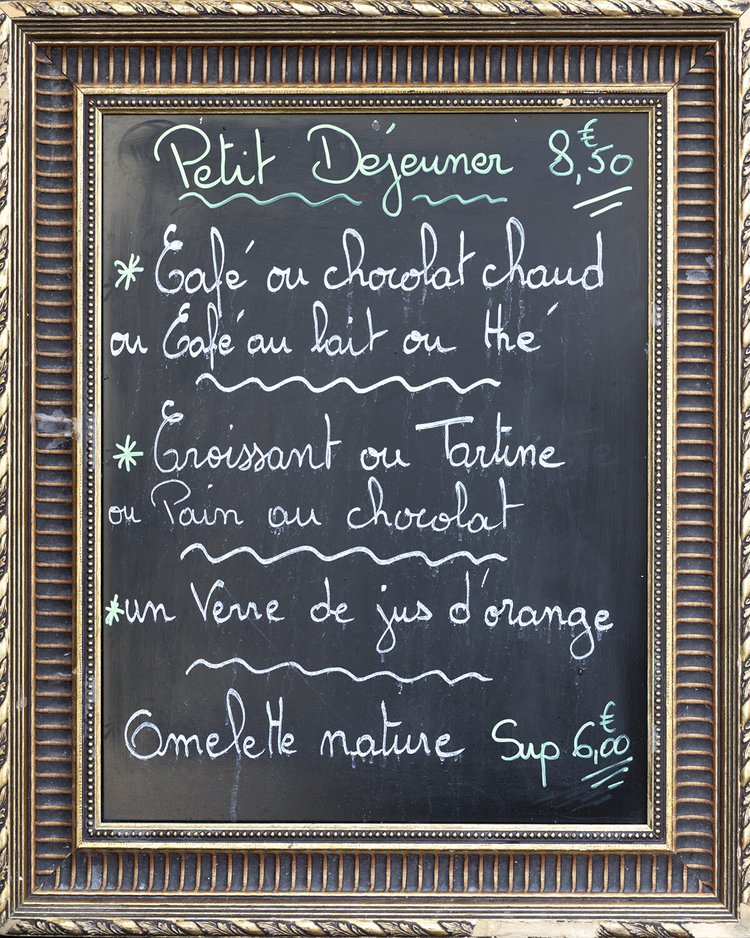 Petit Déjeuner 8,50€
* Café ou chocolat chaud
ou Café au lait ou thé
* Croissant ou Tartine
ou Pain au chocolat
* un Verre de jus d'orange
Omelette nature Sup 6,00€